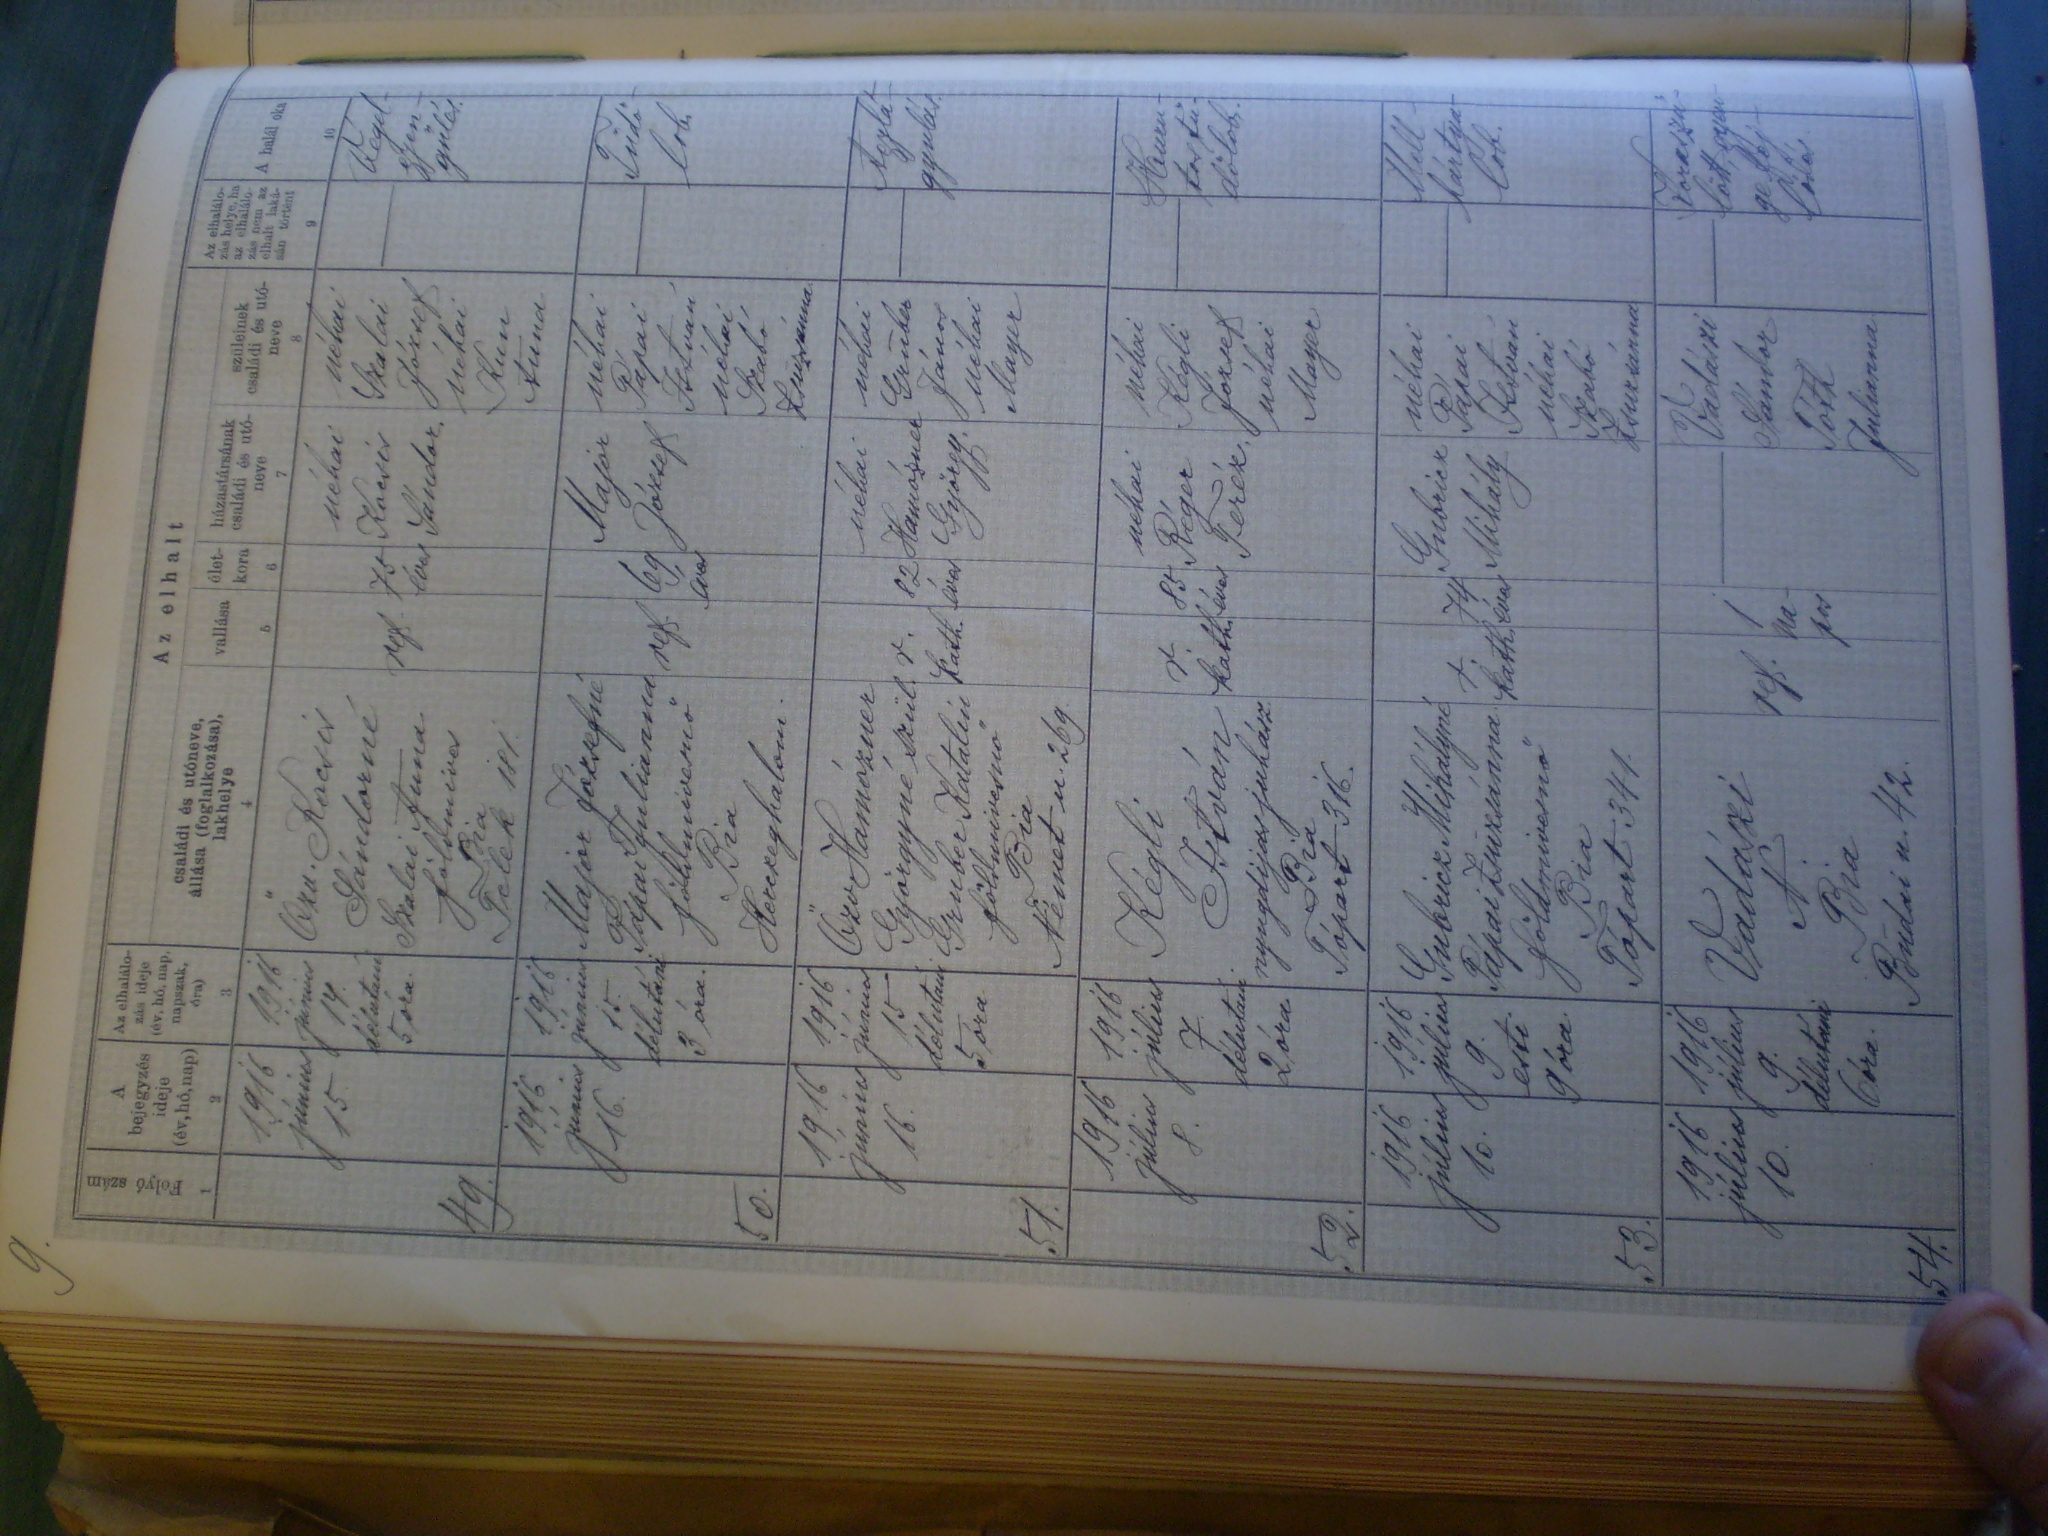 9.
Az elhalt
Folyó szám
A
bejegyzés
ideje
(év, hó, nap)
Az elhalálo-
zás ideje
(év, hó, nap,
napszak,
óra)
családi és utóneve,
állása (foglalkozása),
lakhelye
vallása
élet-
kora
házastársának
családi és utó-
neve
szüleinek
családi és utó-
neve
Az elhalálo-
zás helye, ha
az elhalálo-
zás nem az
elhalt laká-
sán történt
A halál oka
1
2
3
4
5
6
7
8
9
10
49.
1916
június
15
1916
június
14.
délutáni
5 óra.
Özv. Kocsis
Sándorné
Szalai Anna
földmives
Bia
Telek 181.
ref.
75
éves
néhai
Kocsis
Sándor.
néhai
Szalai
József
néhai
Kun
Anna
Végel-
gyen-
gülés.
50.
1916
június
16.
1916
június
15.
délutáni
3 óra.
Major Józsefné
Pápai Julianna
földmivesnő
Bia
Herczeghalom.
ref.
69
éves
Major
József
néhai
Pápai
István
néhai
Szabó
Zsuzsánna.
Tüdő
lob.
51.
1916
június
16.
1916
június
15
délutáni
5 óra
Özv. Hamózner
Györgyné szül.
Gruber Katalin
földmivesnő
Bia
Német u. 269.
r.
kath.
82
éves
néhai
Hamózner
György.
néhai
Gruber
János
néhai
Mayer
Aggkori
52.
1916
július
8.
1916
július
7.
délutáni
2 óra
Kégli
István
nyugdijas juhász
Bia
Tópart 316.
r.
kath.
85
éves
néhai
Réger
Teréz.
néhai
Kégli
József
néhai
Mayer
Huru-
tos tü-
dőlob.
53.
1916
július
10.
1916
július
9.
este
9 óra.
Gubricz Mihályné
Pápai Zsuzsánna
földmivesnő
Bia
Tópart 341.
r
kath.
74
éves
Gubricz
Mihály
néhai
Pápai
István
néhai
Szabó
Zsuzsánna
Mell-
hártya-
lob.
54.
1916
július
10.
1916
július
9.
délutáni
6 óra.
Vadászi
N
Bia
Budai u. 42.
ref.
1
na-
pos
Vadászi
Sándor
Tóth
Julianna